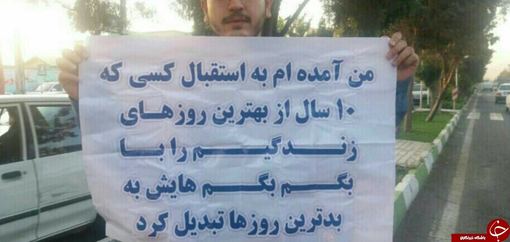 من آمده ام به استقبال کسی که
۱۰ سال از بهترین روزهای
زندگیم را با
بگم بگم هایش به
بدترین روزها تبدیل کرد
باشگاه خبرنگاران